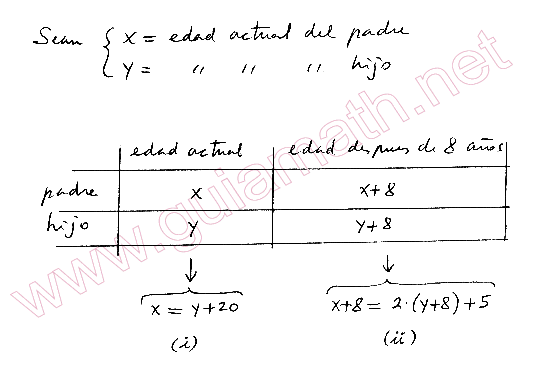 Sean { x = edad actual del padre
y = " " " hijo
edad actual edad despues de 8 años
padre x x+8
hijo y y+8
↓ ↓
x = y+20 x+8 = 2·(y+8)+5
(i) (ii)
www.guiamath.net